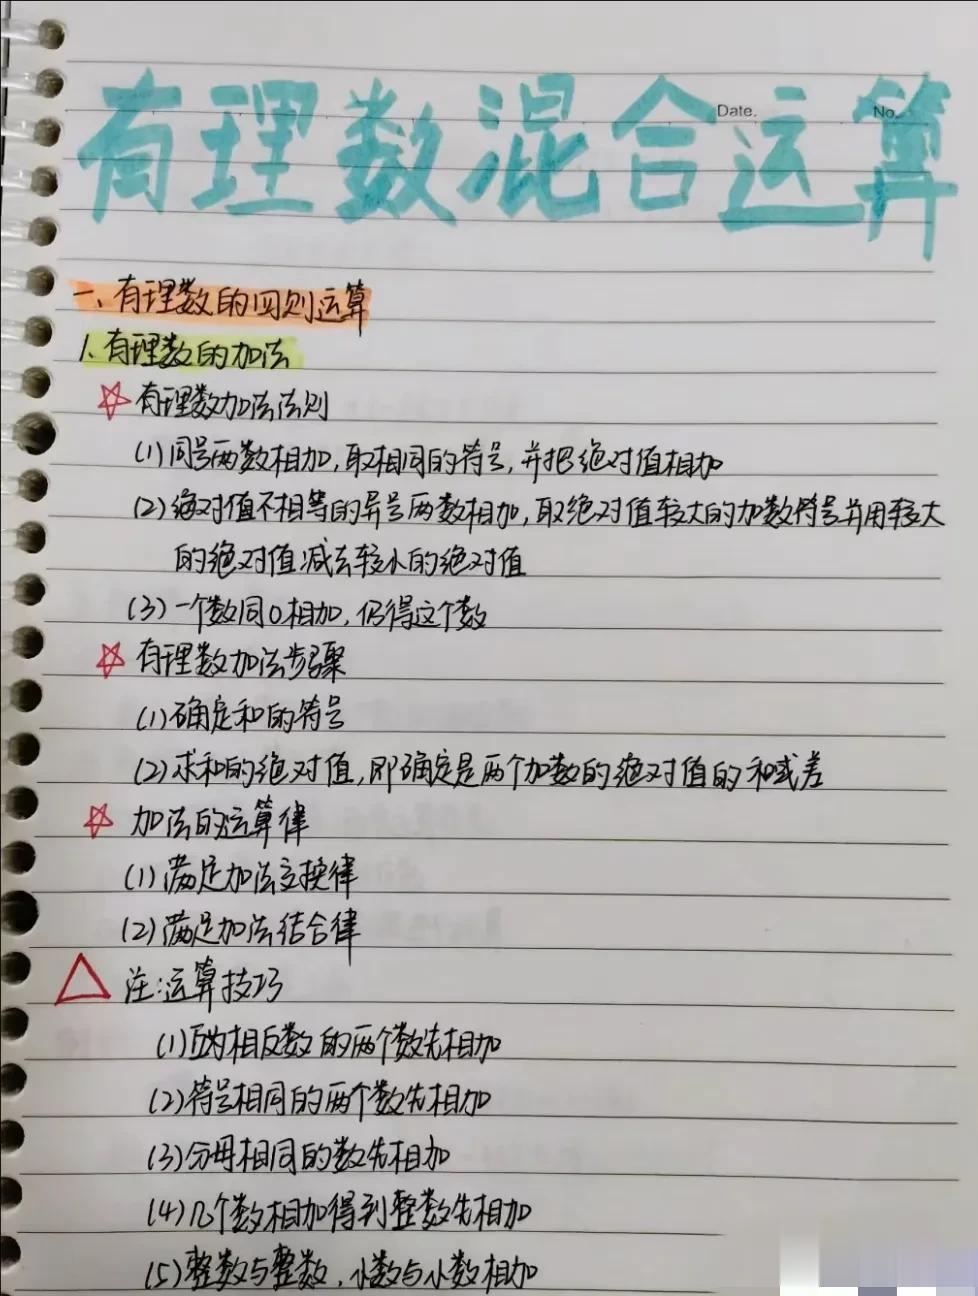 Date.
No.
有理数混合运算
一、有理数的四则运算
1、有理数的加法
☆有理数加法法则
(1)同号两数相加,取相同的符号,并把绝对值相加
(2)绝对值不相等的异号两数相加,取绝对值较大的加数符号并用较大
的绝对值减去较小的绝对值
(3)一个数同0相加,仍得这个数
☆有理数加法步骤
(1)确定和的符号
(2)求和的绝对值,即确定是两个加数的绝对值的和或差
☆加法的运算律
(1)满足加法交换律
(2)满足加法结合律
△注:运算技巧
(1)互为相反数的两个数先相加
(2)符号相同的两个数先相加
(3)分母相同的数先相加
(4)几个数相加得到整数先相加
(5)整数与整数、小数与小数相加